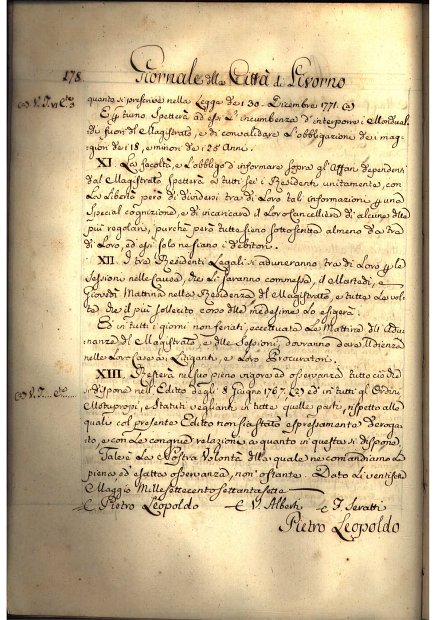 178. Giornale della Città di Livorno
(a) V. T. VI C.te 3 quanto si prescrive nella Legge de' 30. Dicembre 1771. (a)
E a essi l'incumbenza d'interporsi
di fuori del Magistrato, e di convalidare l'obbligazione de' mag-
giori de' 18, e minori de' 25 Anni.
XI. La facoltà, e l'obbligo d'informare sopra gl'Affari dependenti
dal Magistrato spetterà a tutti sei i Residenti unitamente, con
la libertà però di dividersi tra di Loro tali informazioni p una
special cognizione, e di incaricare il Loro Cancelliere di alcune delle
più regolari, purchè però tutte sieno sottoscritte almeno da tre
di Loro, ed essi solo ne siano i debitori.
XII. I tre Residenti Legali si aduneranno tra di Loro p le
Sessioni nelle Cause, che Li saranno commesse, il Martedì, e
Giovedì Mattina nella Residenza del Magistrato, e tutte le vol-
te che il più sollecito corso delle medesime lo esigerà.
Ed in tutti i giorni non feriati, eccettuata la Mattina dell'Adu-
nanza del Magistrato, e delle Sessioni, dovranno dare Udienza
nelle Loro Case a' Litiganti, e Loro Procuratori.
XIII. Resterà nel suo pieno vigore ed osservanza tutto ciò che
(a) V. T. C.te si dispone nell'Editto degli 8 Giugno 1767. (a) ed in tutti gl'Ordini,
Motupropri, e Statuti veglianti in tutte quelle parti, rispetto alle
quali col presente Editto non sia stato espressamente derogato
e con le congrue relazioni a quanto in questo si dispone
Tale è la Nostra Volontà della quale ne comandiamo la
piena ed esatta osservanza, non ostante. Dato li ventisei
Maggio Millesettecentosettantasette
Pietro Leopoldo V. Alberti F. Seratti
Pietro Leopoldo